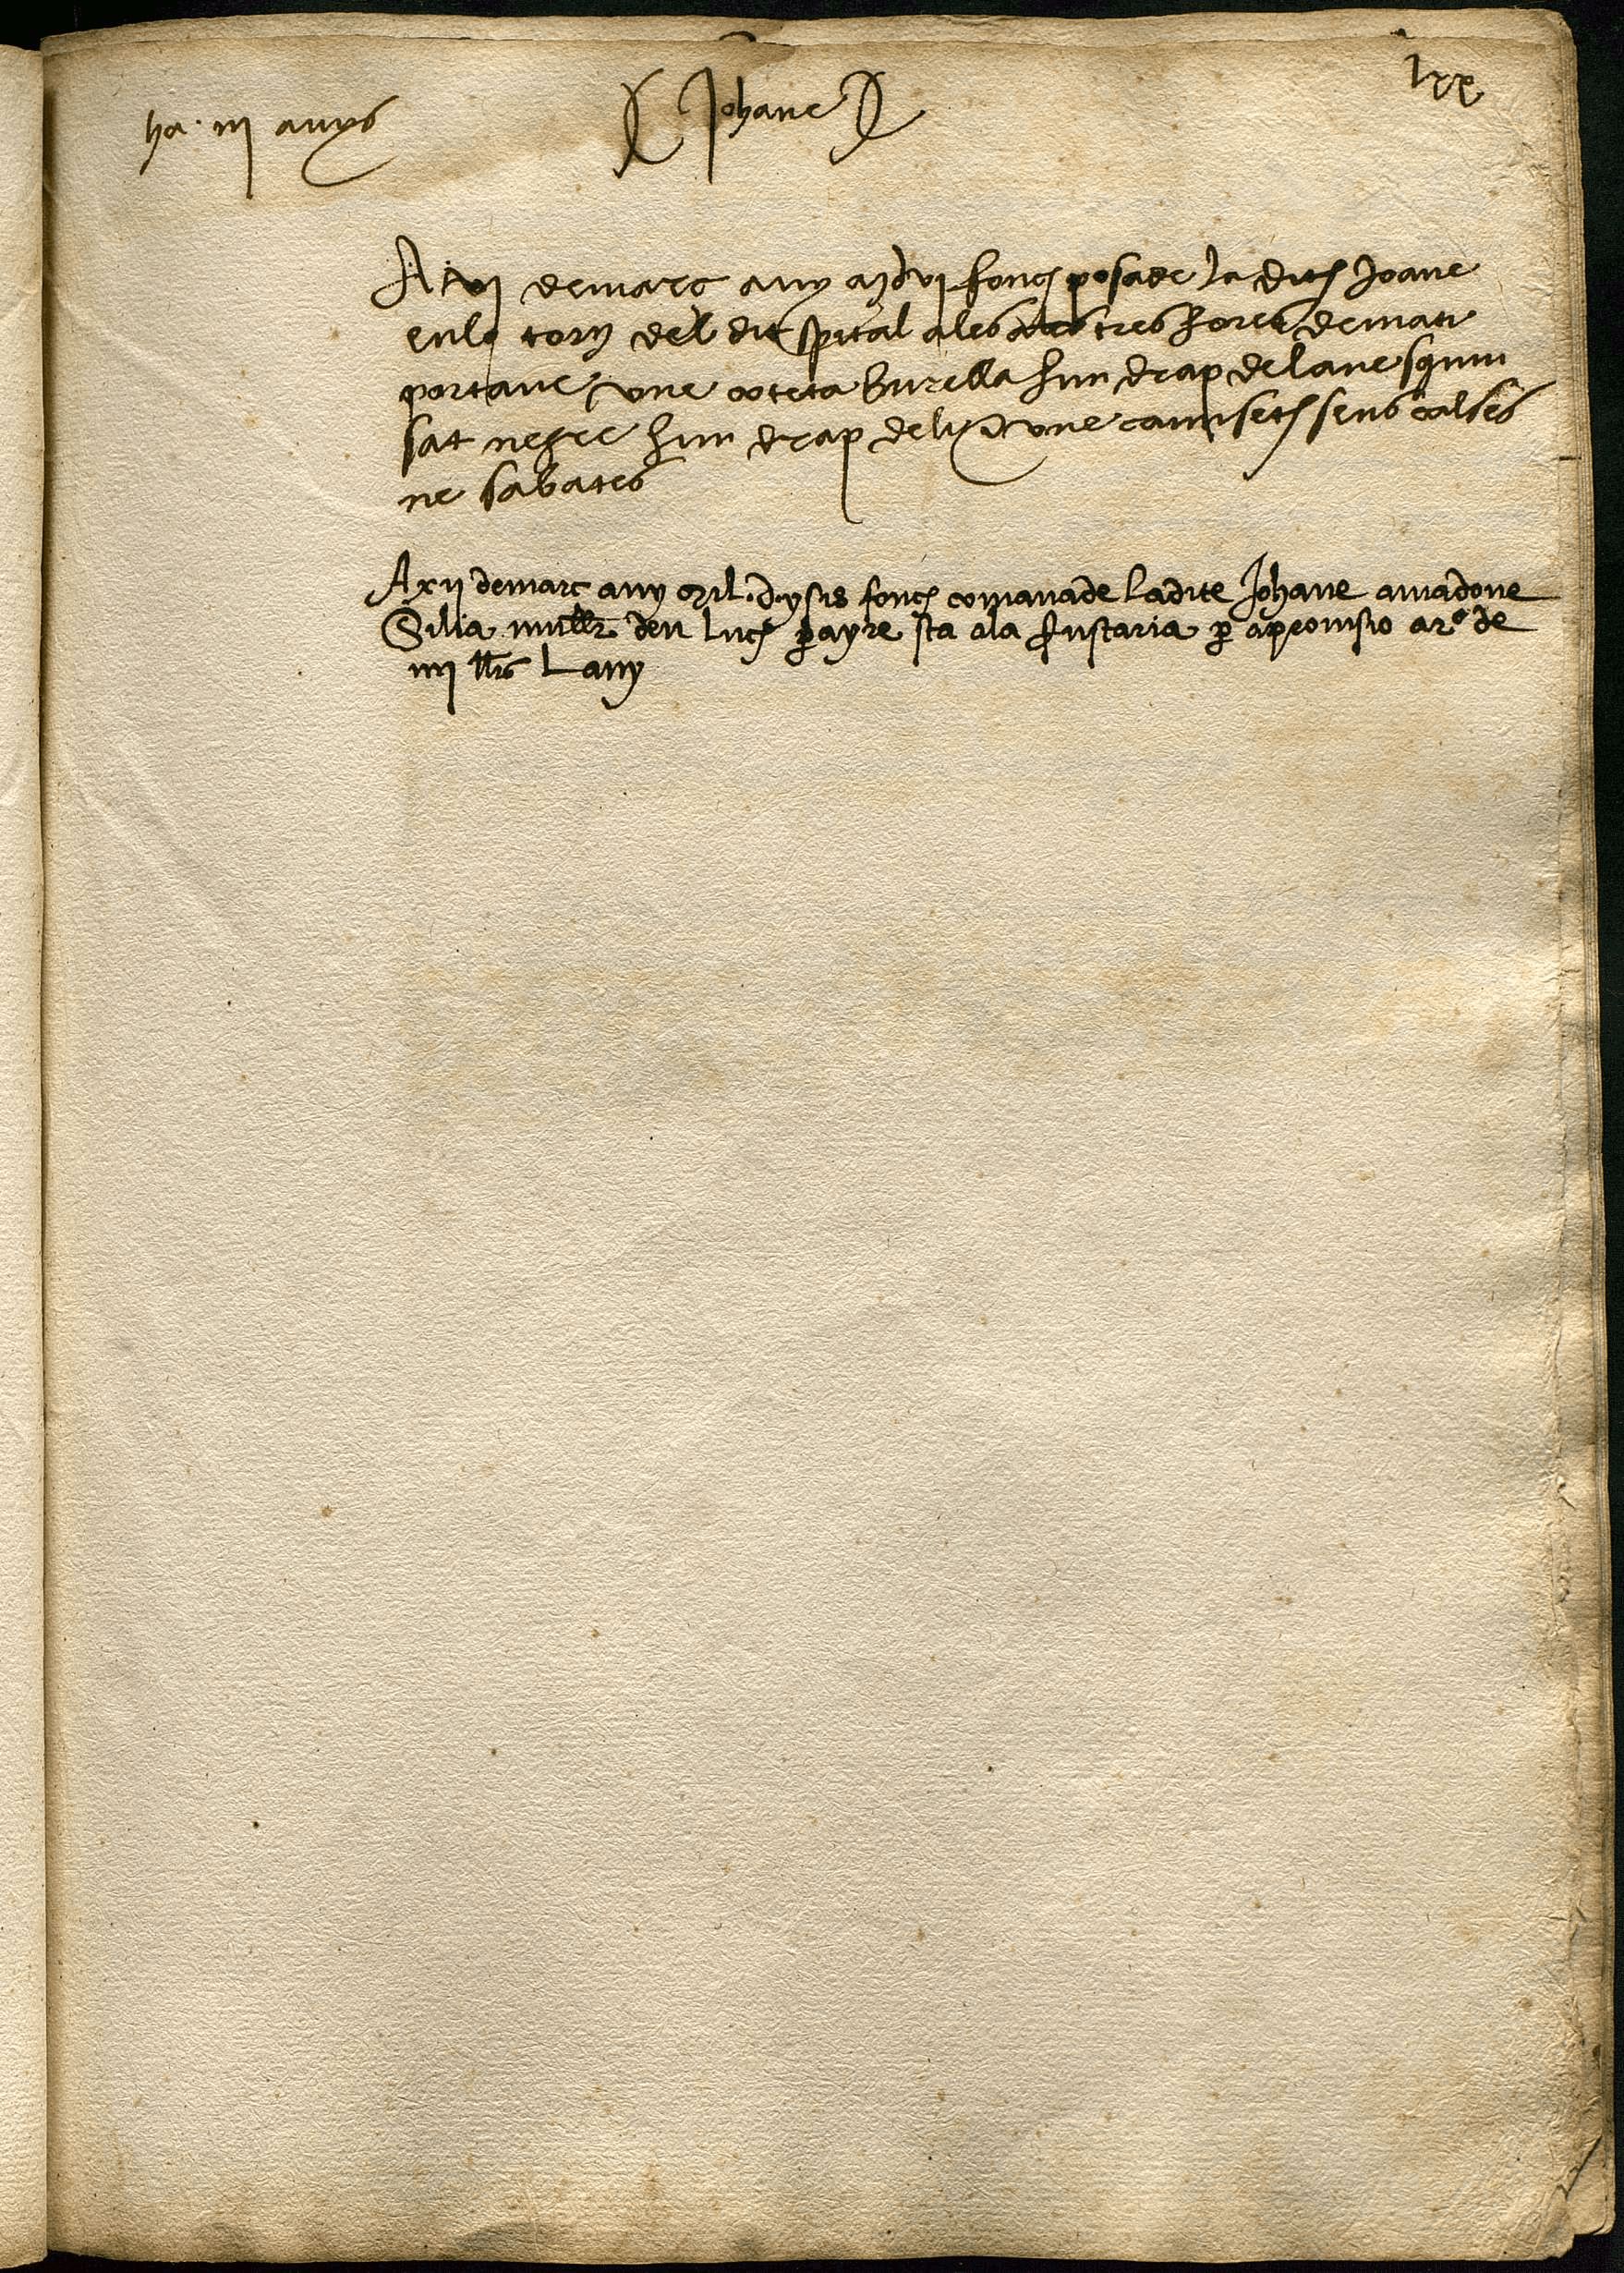 lxx
ha · iii anys
Johane
A vi de març any mdvi fonch posade la dita Joane
en lo torn del dit spital a les tres hores de mati
portave une coteta burella hun drap de lane squin
sat negre hun drap de li une camiseta sens calses
ne sabates
A xii de març any mil · d · y sis fonch comanade la dite Johane a madone
Silia mullr den luch perayre sta a la fustaria per a provisio a ro de
iiii llrs lany